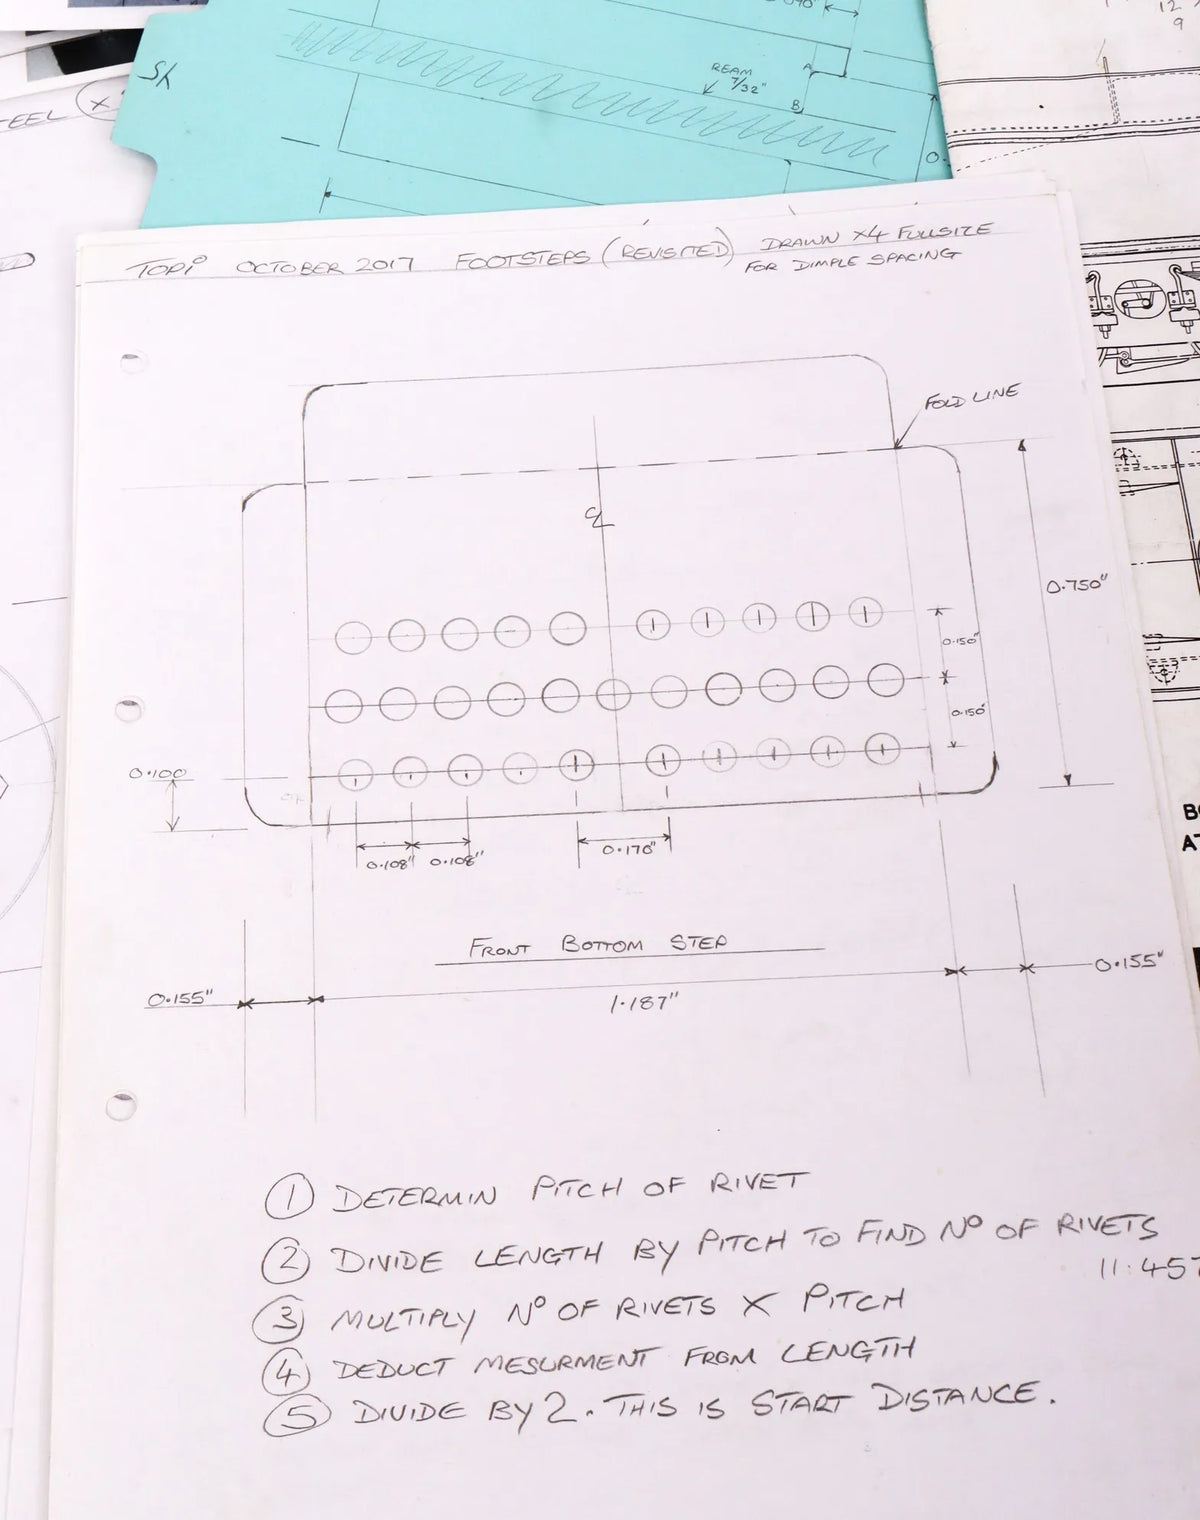 12
9
SK
REAM
7/32"
A
B
EEL X
O.
TOPI OCTOBER 2017 FOOTSTEPS (REVISITED) DRAWN X4 FULLSIZE
FOR DIMPLE SPACING
FOLD LINE
℄
0.750"
0.150"
0.150"
0.100
0.108" 0.108"
0.170"
FRONT BOTTOM STEP
0.155"
1.187"
0.155"
① DETERMIN PITCH OF RIVET
② DIVIDE LENGTH BY PITCH TO FIND Nº OF RIVETS
11.457
③ MULTIPLY Nº OF RIVETS X PITCH
④ DEDUCT MESURMENT FROM LENGTH
⑤ DIVIDE BY 2. THIS IS START DISTANCE.